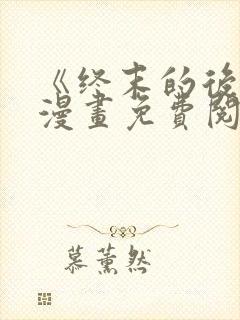 《终末的後
漫畫免費閱
慕薰然